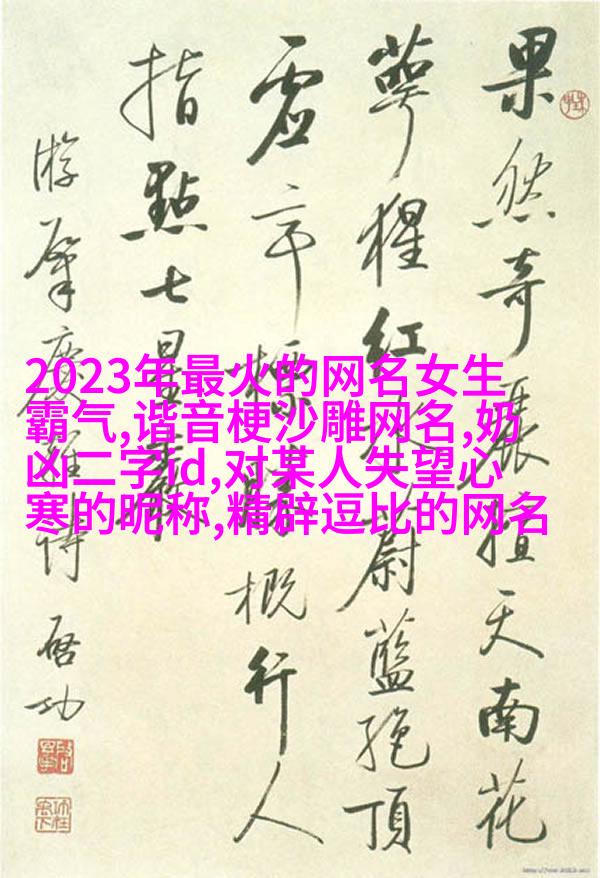 果然奇擅天南花
萼猩红蔚藍絶頂
虚亭標概行人
指點七星
游肇慶雜詩 啓功
2023年最火的网名女生
霸气,谐音梗沙雕网名,奶
凶二字id,对某人失望心
寒的昵称,精辟逗比的网名